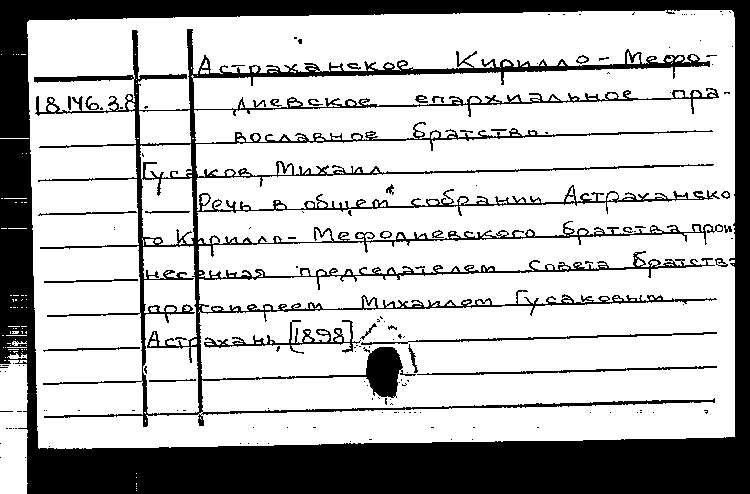 Астраханское Кирилло-Мефо-
18.146.3.8. диевское епархиальное пра-
вославное братство.
Гусаков, Михаил
Речь в общем собрании Астраханско
го Кирилло-Мефодиевского братства, прои
несенная председателем Совета братства
протоиереем Михаилом Гусаковым.
Астрахань, [1898]